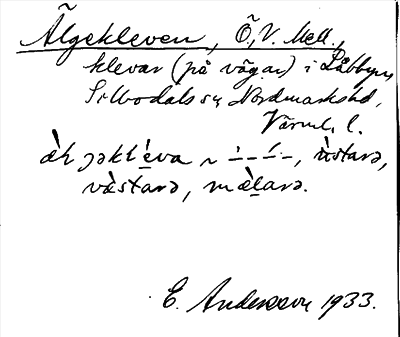 Älgekleven, Ö, V. Mell.,
klevar (på vägar) i Låbbyn,
Silbodals sn, Nordmarkshd,
Värml. l.
ɉəklè̱va ~
västarə, mèḻarə.
E. Andersson 1933.